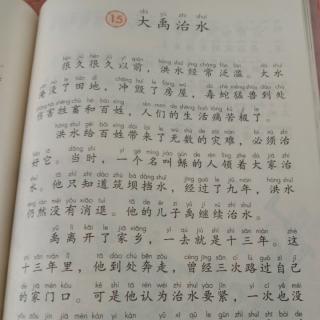 15 大禹治水
很久很久以前，洪水经常泛滥。大水
淹没了田地，冲毁了房屋，毒蛇猛兽到处
伤害牲畜和百姓，人们的生活痛苦极了
洪水给百姓带来了无数的灾难，必须治
好它。当时，一个名叫鲧的人领着大家治
水。他只知道筑坝挡水，经过了九年，洪水
仍然没有消退。他的儿子禹继续治水。
禹离开了家乡，一去就是十三年。这
十三年里，他到处奔走，曾经三次路过自己
的家门口。可是他认为治水要紧，一次也没